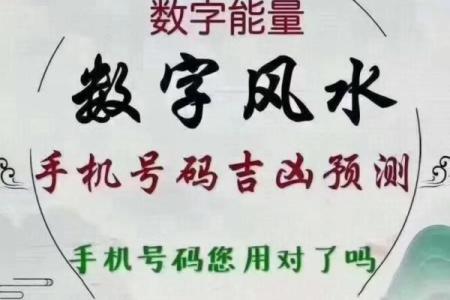 数字能量
数字风水
手机号码吉凶预测
手机号码您用对了吗